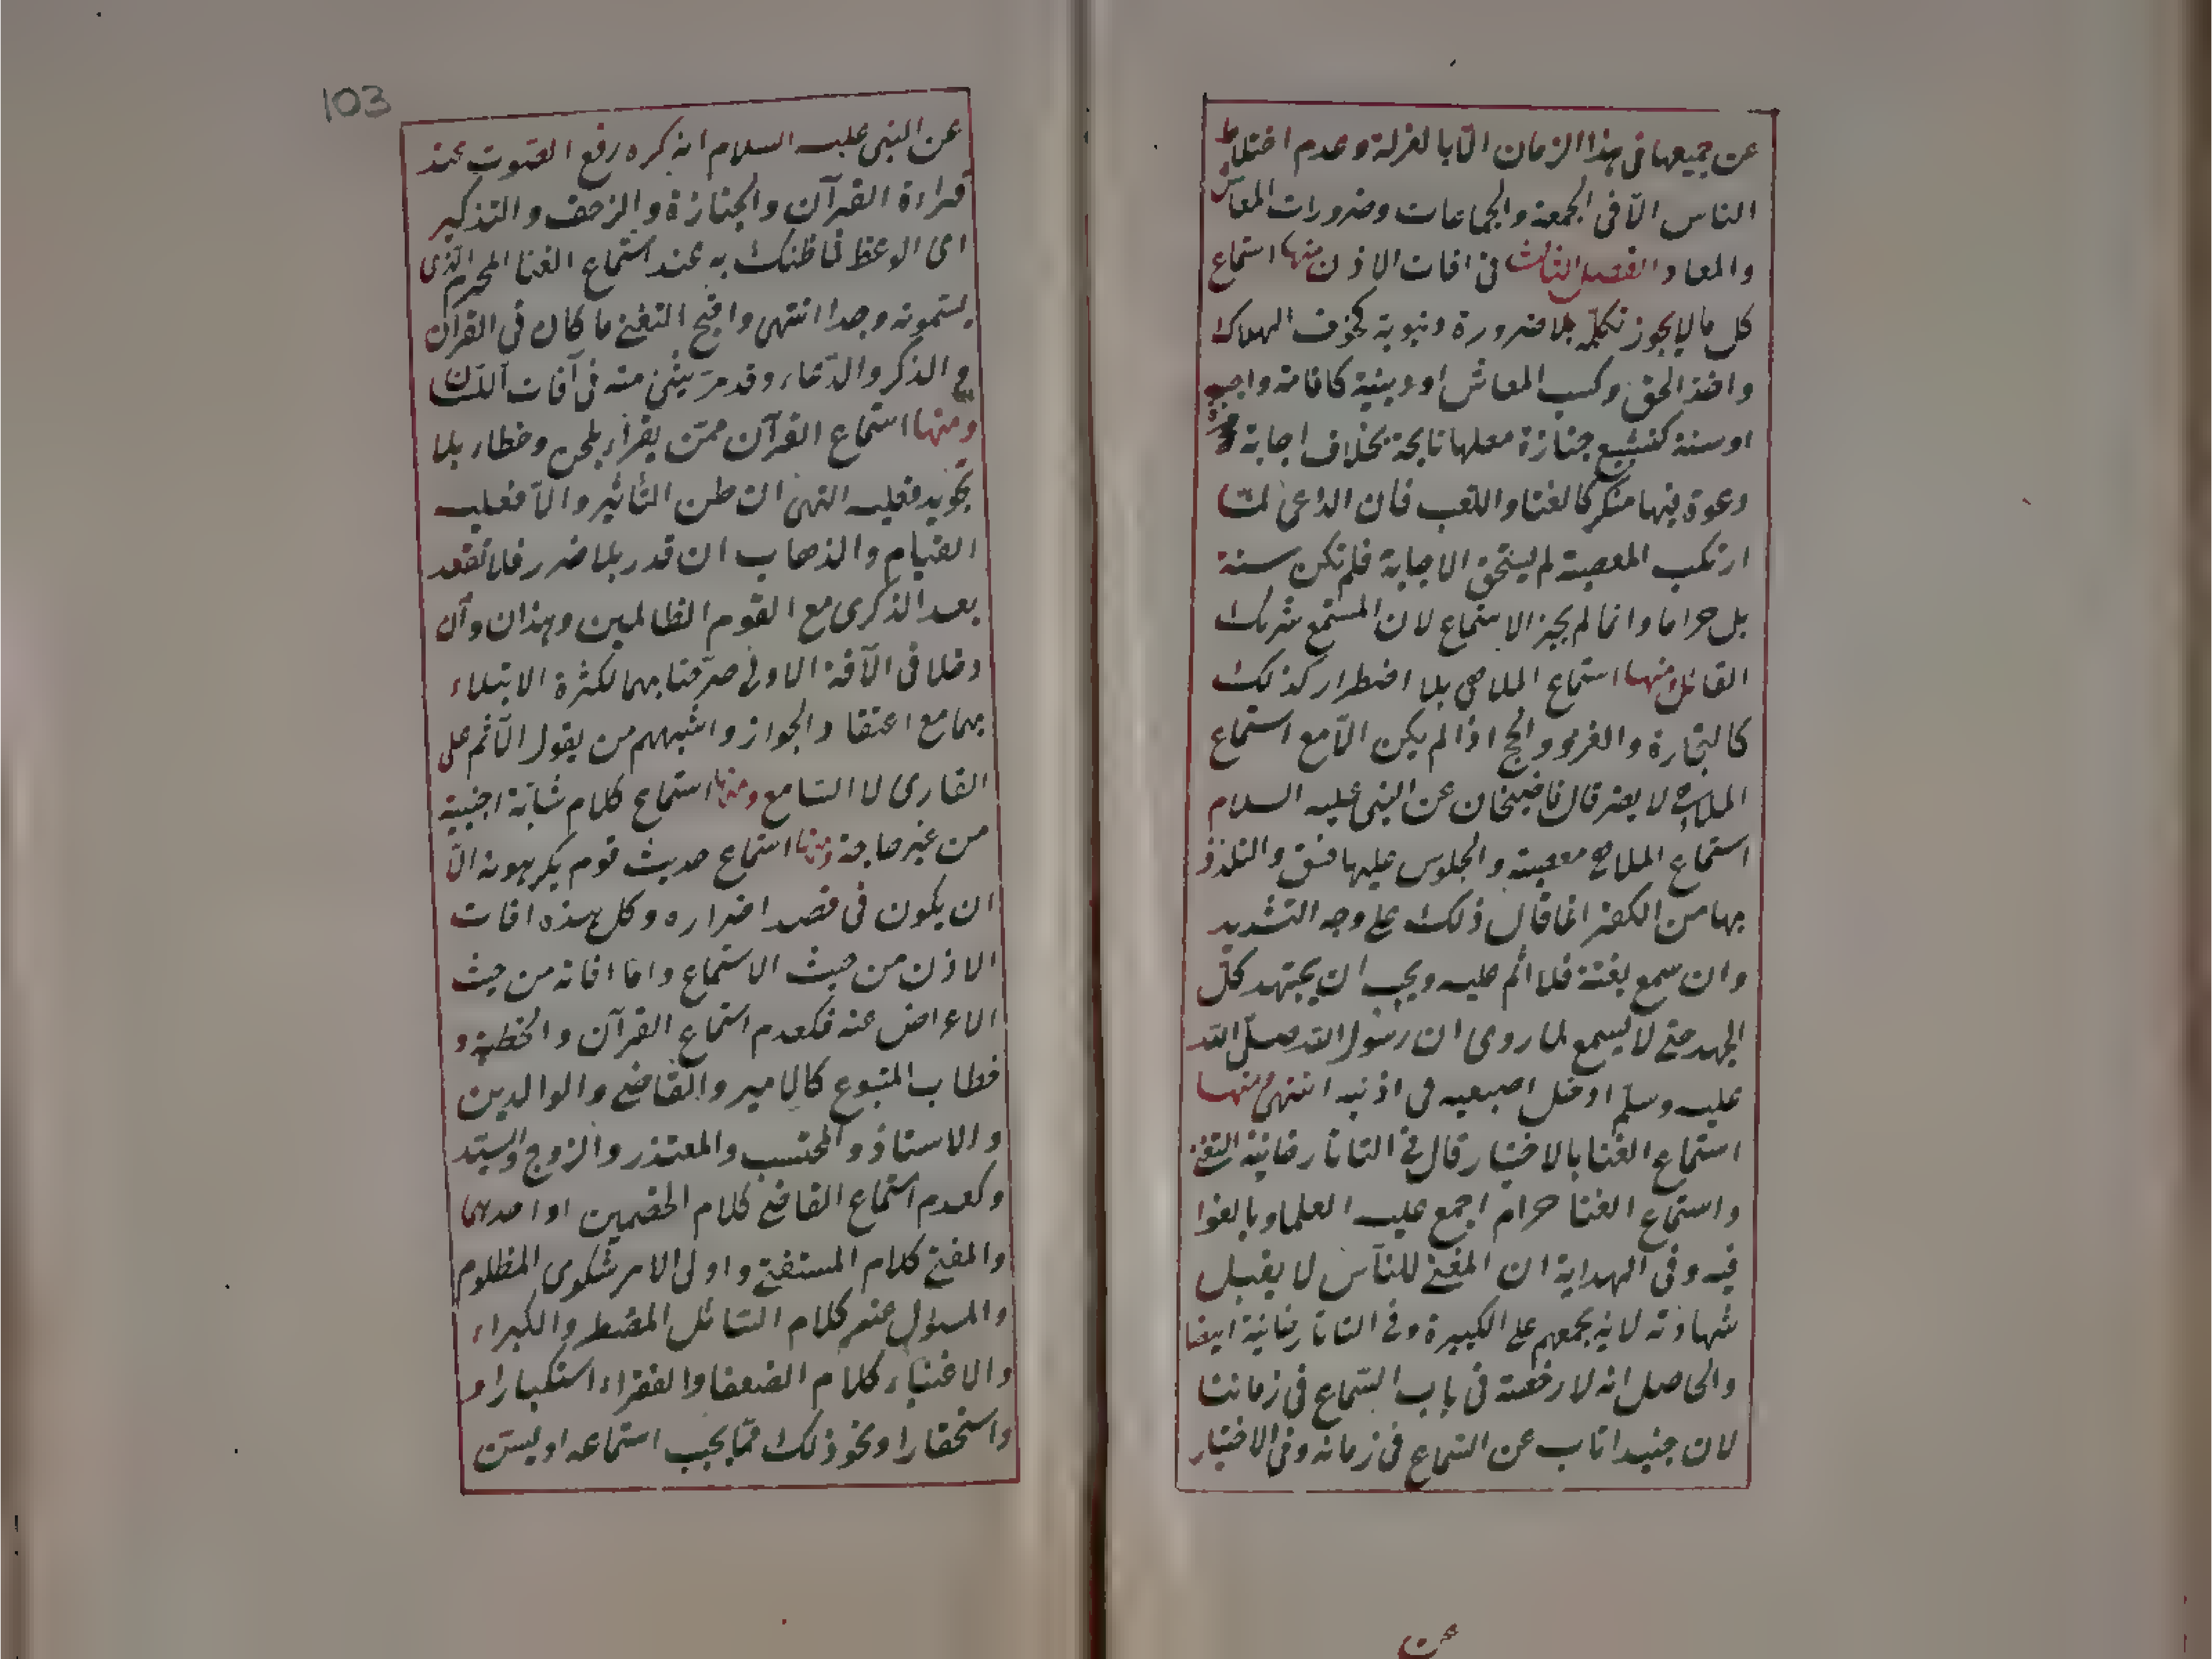 عن جميعها فى هذا الزمان الّا بالعزلة وعدم اختلاط
الناس الّا فى الجمعة والجماعات وضرورات المعاش
والمعاد الفصل الثالث فى افات الاذن منها استماع
كل ما لا يجوز تكلّمه بلا ضرورة دنيوية كخوف الهلاك
واخذ الحق وكسب المعاش او دينية كاقامة واجب
او سنة كتشييع جنازة معلها نايحة بخلاف اجابة
دعوة فيها منكر كالغنا واللعب فان الداعى لمّا
ارتكب المعصية لم يستحق الاجابة فلم تكن سنة
بل حراما وانما لم يجز الاستماع لان المستمع شريك
القائل ومنها استماع الملاهى بلا اضطرار كذلك
كالتجارة والغزو والحج اذا لم يكن الّا مع استماع
الملاهى لا يضر قال قاضيخان عن النبى عليه السلام
استماع الملاهى معصية والجلوس عليها فسق والتلذذ
بها من الكفر انما قال ذلك على وجه التشديد
وان سمع بغتة فلا اثم عليه ويجب ان يجتهد كلّ
الجهد حتى لا يسمع لما روى ان رسول الله صلّى الله
عليه وسلّم ادخل اصبعيه فى اذنيه انتهى ومنها
استماع الغنا بالاختيار قال فى التاتارخانية التغنى
واستماع الغنا حرام اجمع عليه العلما وبالغوا
فيه وفى الهداية ان المغنى للنّاس لا يقبل
شهادته لانه يجمعهم على الكبيرة وفى التاتارخانية ايضا
والحاصل انه لا رخصة فى باب السّماع فى زماننا
لان جنيدا تاب عن السّماع فى زمانه وفى الاختيار
عن
103
عن النبى عليه السلام انه كره رفع الصّوت عند
قراءة القرآن والجنازة والزحف والتذكير
اى الوعظ فما ظنك به عند استماع الغنا المحرم الّذى
يسمّونه وجدا انتهى واقبح التغنى ما كان فى القرآن
والذكر والدّعاء وقد مرّ شئ منه فى آفات اللسان
ومنها استماع القرآن ممّن يقراء بلحن وخطاء بلا
تجويد فعليه النهى ان ظن التأثير والّا فعليه
القيام والذهاب ان قدر بلا ضرر فلا تقعد
بعد الذكرى مع القوم الظالمين وهذان وان
دخلا فى الآفة الاولى صرّحنا بهما لكثرة الابتلاء
بهما مع اعتقاد الجواز واشبههم من يقول الاثم على
القارى لا السّامع ومنها استماع كلام شابّة اجنبية
من غير حاجة ومنها استماع حديث قوم يكرهونه الّا
ان يكون فى قصد اضراره وكل هذه افات
الاذن من حيث الاستماع واما افاته من حيث
الاعراض عنه فكعدم استماع القرآن والخطبة و
خطاب المتبوع كالامير والقاضى والوالدين
والاستاذ والمحتسب والمعتذر والزوج والسيّد
وكعدم استماع القاضى كلام الخصمين او احدهما
والمفتى كلام المستفتى واولى الامر شكوى المظلوم
والمسؤل عنهم كلام السّائل المضطر والكبراء
والاغنياء كلام الضعفا والفقراء استكبارا و
واستحقارا ونحو ذلك ممّا يجب استماعه او يسنّ